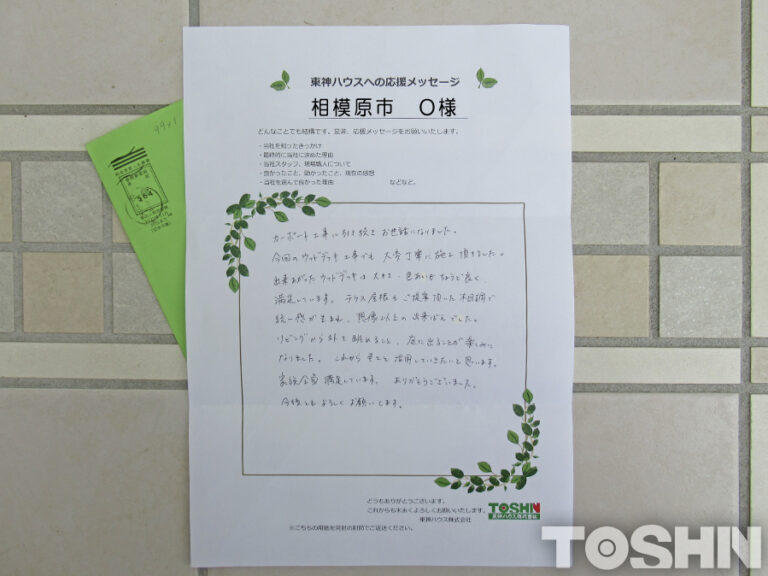 東神ハウスへの応援メッセージ
相模原市 O様
どんなことでも結構です。是非、応援メッセージをお願いいたします。
・当社を知ったきっかけ
・最終的に当社に決めた理由
・当社スタッフ、現場職人について
・良かったこと、助かったこと、現在の感想
・当社を選んで良かった理由 などなど。
カーポート工事に引き続き お世話になりました。
今回のウッドデッキ工事でも 大変丁寧に施工頂きました。
出来あがったウッドデッキは 大きさ・色あいがちょうど良く、
満足しています。 テラス屋根も ご提案頂いた木目調で
統一感が生まれ、想像以上の出来ばえでした。
リビングから外を眺めること、庭に出ることが楽しみに
なりました。 これから 活用していきたいと思います。
家族全員満足しています。 ありがとうございました。
今後とも よろしくお願いします。
どうもありがとうございます。
これからも末永くよろしくお願いいたします。
東神ハウス株式会社
TOSHIN
東神ハウス株式会社
※こちらの用紙を同封の封筒でご返送ください。
99×1
64
TOSHIN